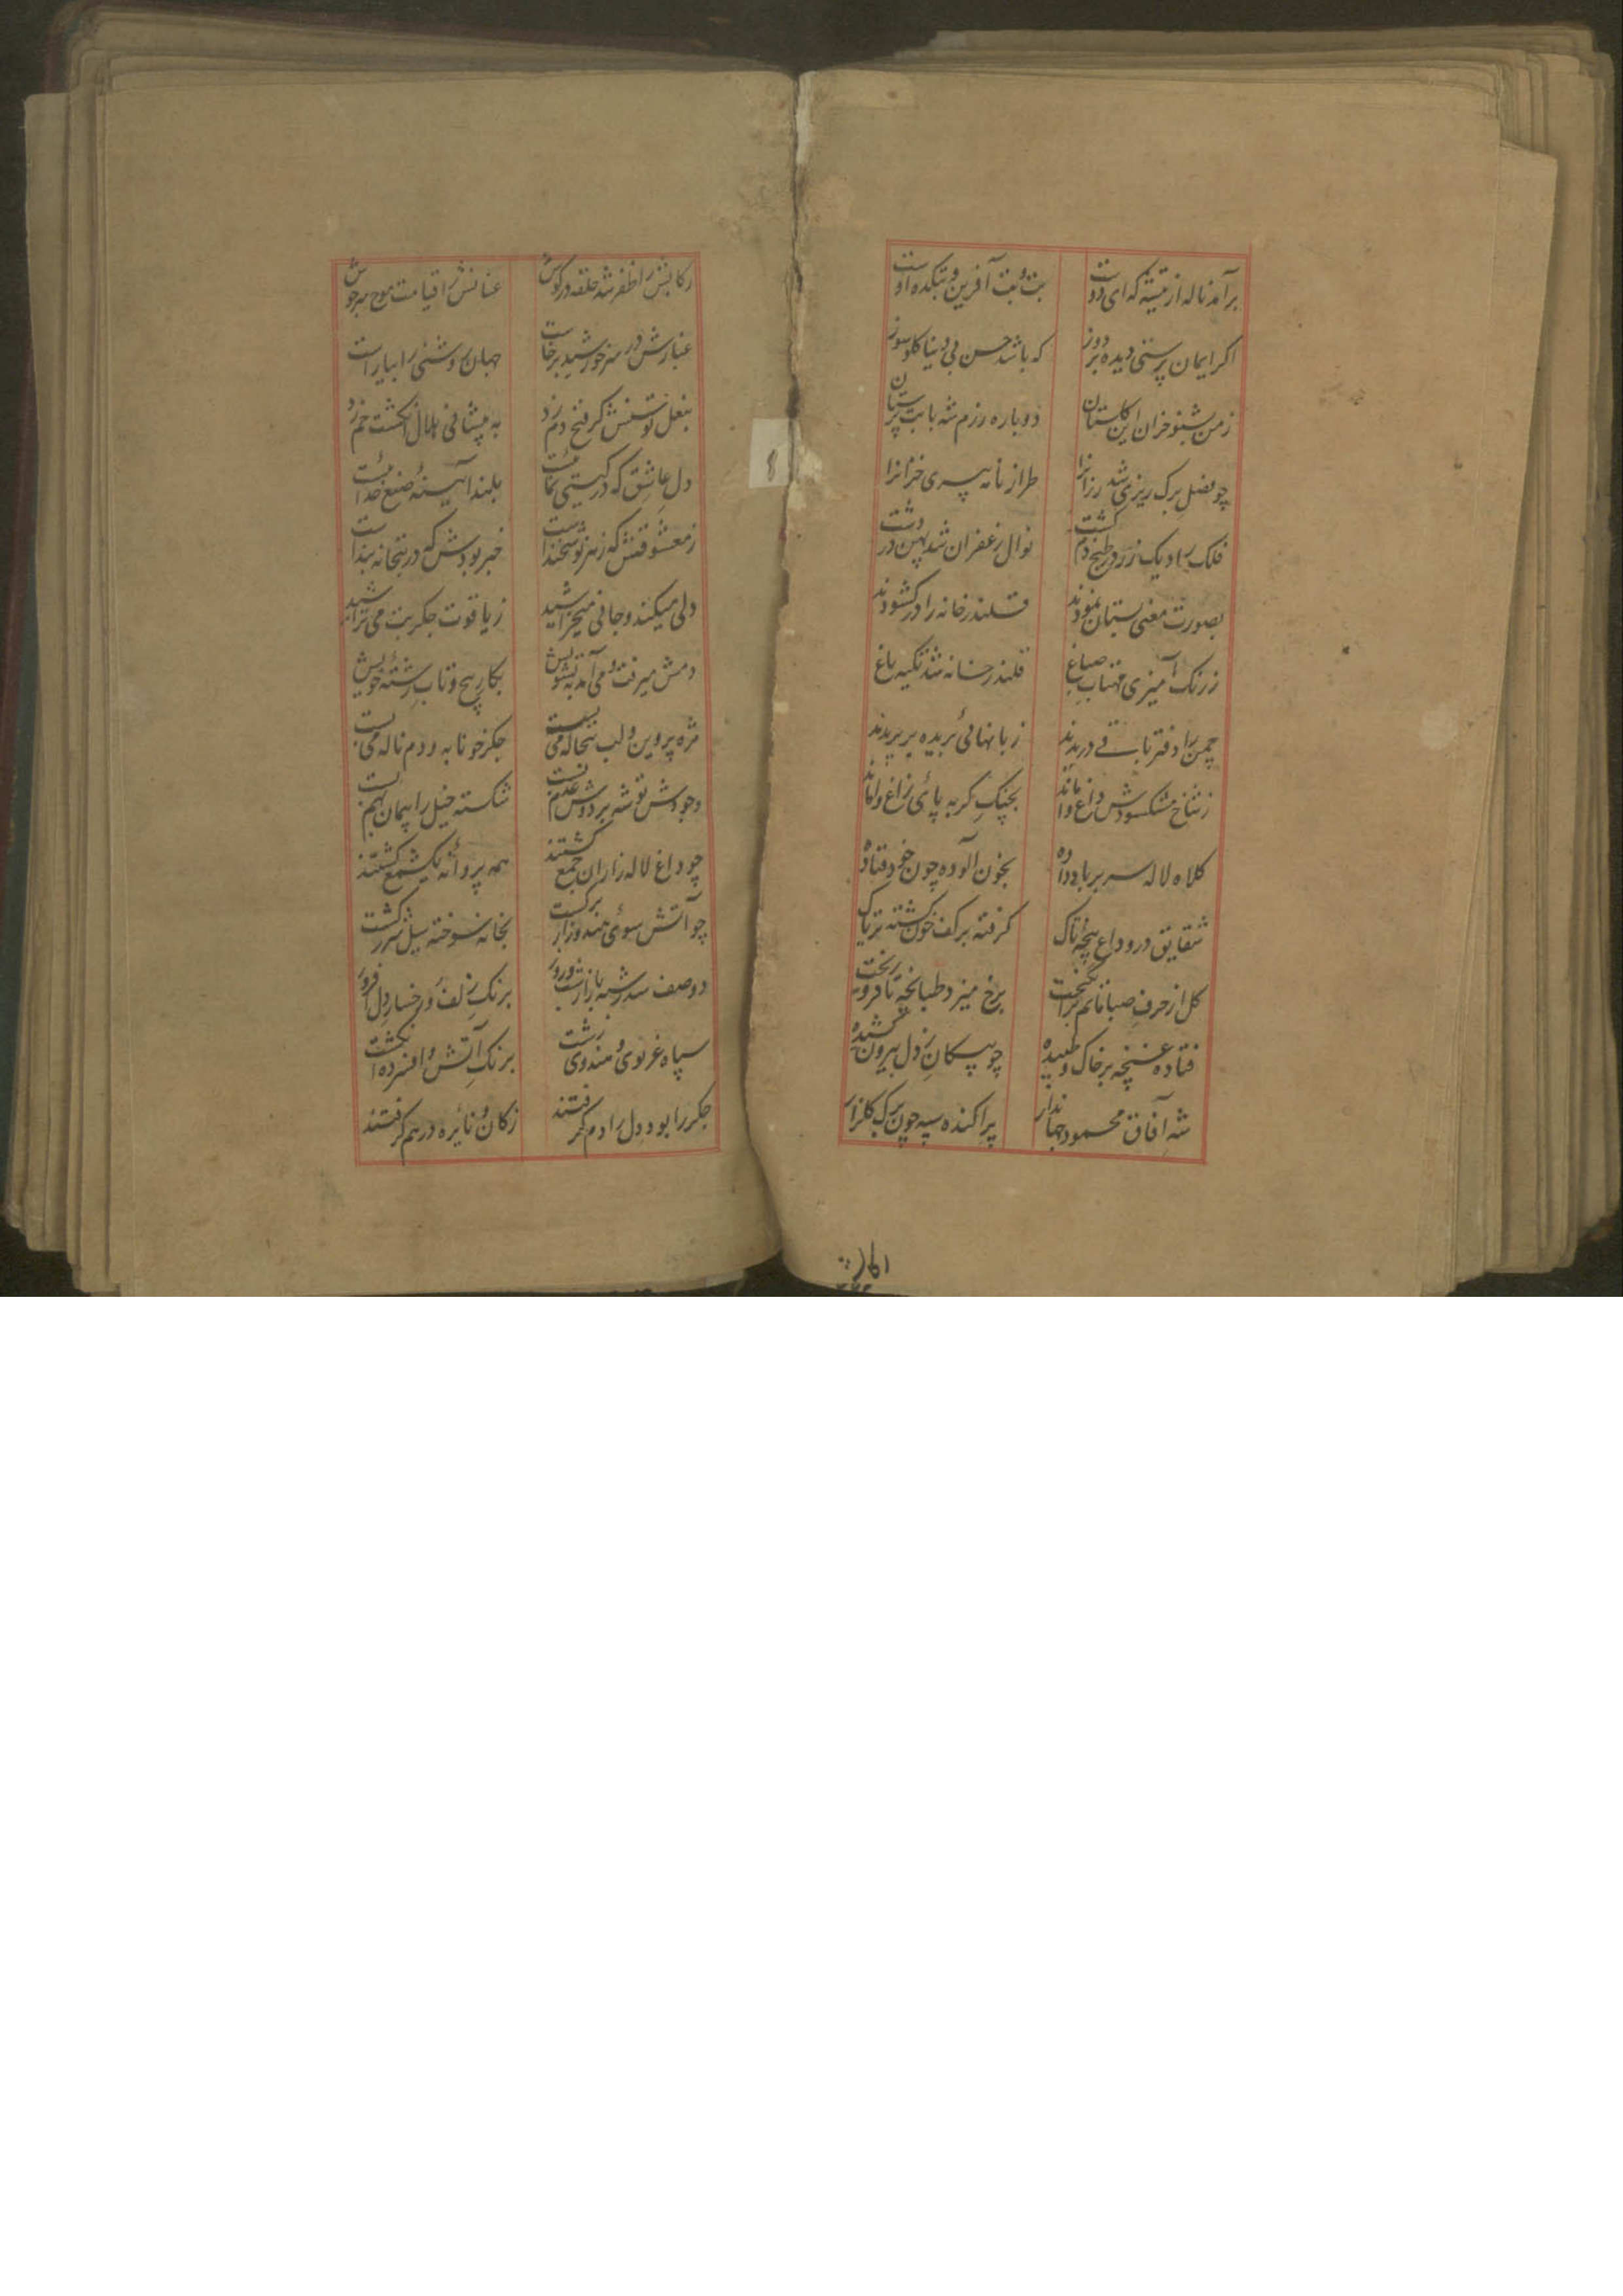 برآمد ناله از تیشه که ای دوست بت و بت آفرین و بتکده اوست
اکر ایمان پرستی دیده بر دوز که باشد حسن بی دینا کلوسوز
زمن بشنو خزان این کلستان دوباره رزم شه با بت پرستان
چو فصل برک ریزی شد رزانرا طراز نامه پیری خزانرا
فلک را دیک زر در طبخ دم کشت نوال زعفران شد پهن در دشت
بصورت معنی بستان نمودند قلندرخانه را در کشودند
ز رنک آمیزی مهتاب صباغ قلندر خانه شد تکیه باغ
چمن را دفتر باقی دریدند زبانهائی بریده بر بریدند
ز شاخ مشکسودش داغ واماند بچنک کربه پائی زاغ واماند
کلاه لاله سر بر باد داده بخون آلوده چون خود فتاده
شقایق در وداع پنجه تاک کرفته بر کف خون کشته تریاک
کل از حرف صبا ماتم برانکیخت برخ میزد طبانچه تا فرو ریخت
فتاده غنچه بر خاک و طپیده چو پیکان ز دل بیرون کشیده
شه آفاق محمود جهاندار پراکنده سپه چون برک کلزار
رکابش را ظفر شد حلقه در کوش عنانش را قیامت موج سرجوش
غبارش در سر خورشید برخاست جهان روشنی را بیاراست
بنعل توسنش کر فتح دم زد به پیشانی هلال انکشت خم زد
دل عاشق که در کیتی نمائیست بلند آئینه صنع خدائیست
ز معشوقش که رمز نو سخنداست خبر بودش که در بتخانه بنداست
دلی میکند و جانی میخراشید ز یاقوت جکر بت می تراشید
دمش میرفت و می آمد به تشویش بکار پیچ و تاب رشته خویش
مژه پروین و لب تبخاله می بست جکر خونابه و دم ناله می بست
وجودش توشه بر دوش عدم بست شکسته خیل را پیمان بهم بست
چو داغ لاله زاران جمع کشتند همه پروانه یکشمع کشتند
چو آتش سوئی هندوزار برکشت بخانه سوخته سیل شرر کشت
دو صف شد رسته بازار شب و روز برنک زلف و رخسار دل افروز
سپاه غزنوی و هندوی زشت برنک آتش و افسرده انکشت
جکر را بود و دل را دم کرفتند ز کان و نائره در هم کرفتند